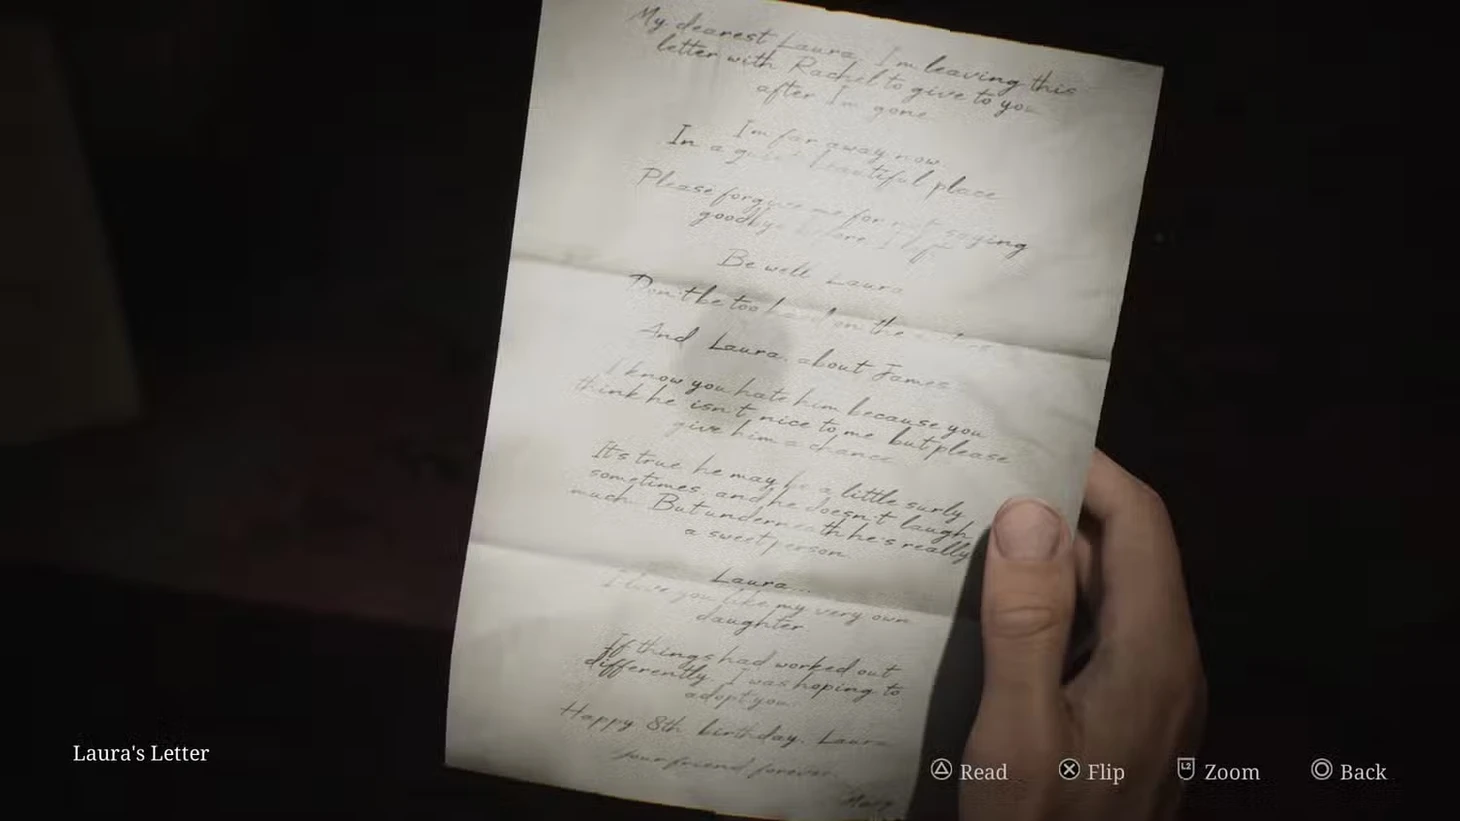 My dearest Laura, I'm leaving this
letter with Rachel to give to you
after I'm gone.
I'm far away now.
In a quiet beautiful place
Please forgive me for not saying
goodbye before I left
Be well Laura
Don't be too hard on the
And Laura, about James
I know you hate him because you
think he isn't nice to me but please
give him a chance
It's true he may be a little surly
sometimes, and he doesn't laugh
much. But underneath he's really
a sweet person
Laura...
I love you like my very own
daughter
If things had worked out
differently, I was hoping to
adopt you.
Happy 8th birthday, Laura
Your friend forever,
Mary
Laura's Letter
Read
Flip
L2
Zoom
Back